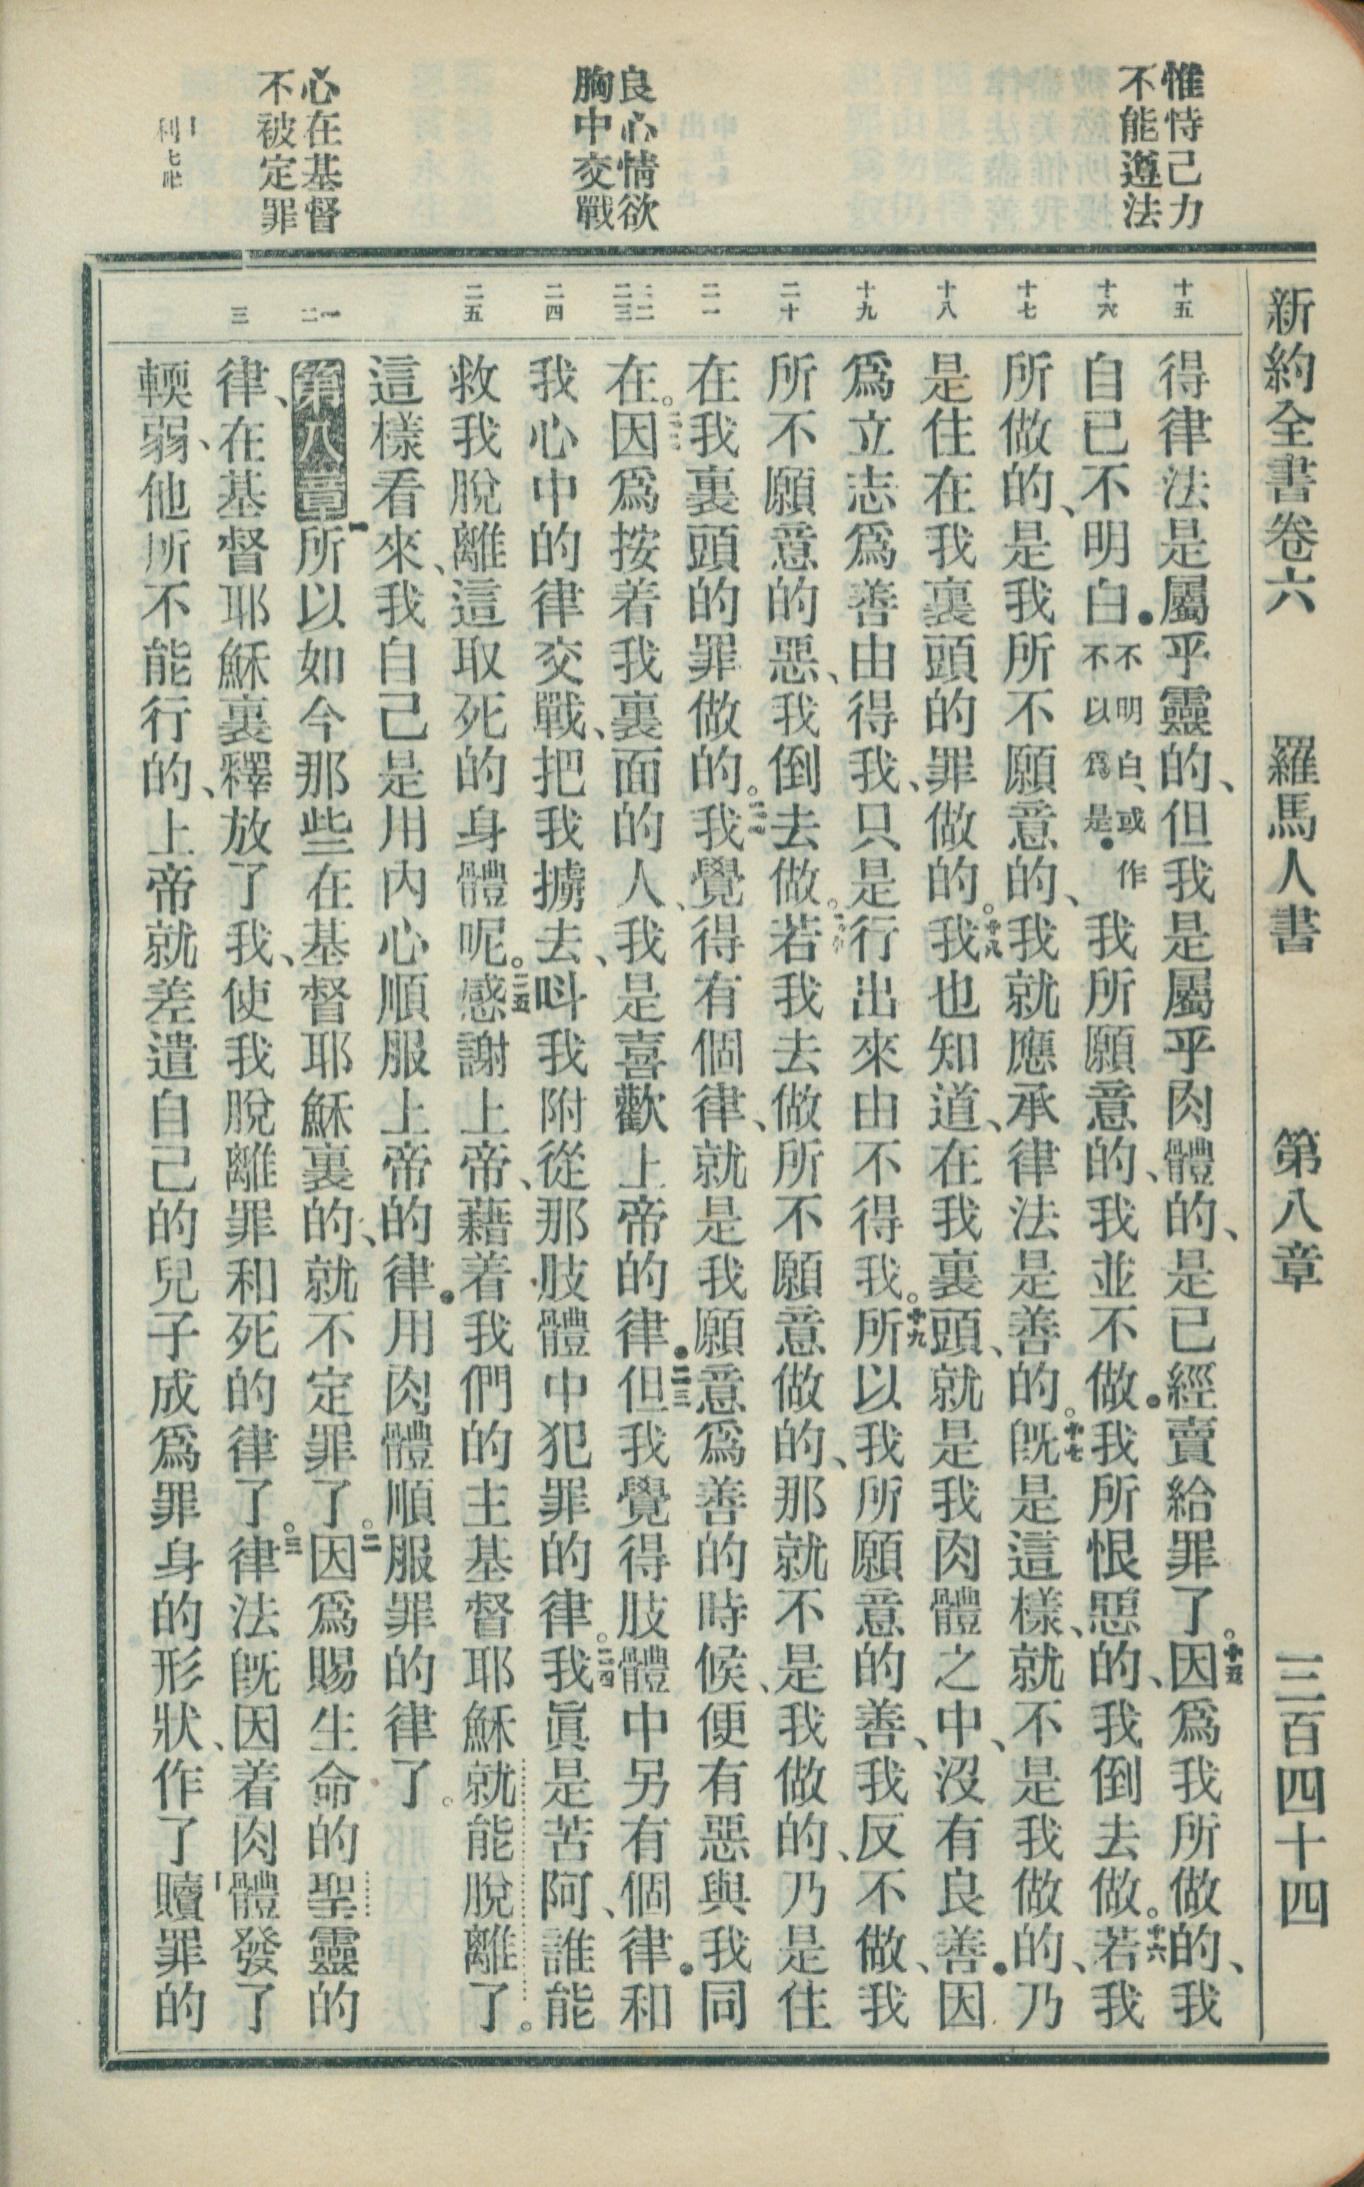 新約全書卷六 羅馬人書 第八章 三百四十四
惟恃己力
不能遵法
良心情欲
胸中交戰
心在基督
不被定罪
十五
十六
十七
十八
十九
二十
二一
二二
二三
二四
二五
一
二
三
得律法是屬乎靈的、但我是屬乎肉體的、是已經賣給罪了。十五因爲我所做的、我
自已不明白．不明白、或作不以爲是．我所願意的、我並不做．我所恨惡的、我倒去做。十六若我
所做的、是我所不願意的、我就應承律法是善的。十七旣是這樣、就不是我做的、乃
是住在我裏頭的罪做的。十八我也知道、在我裏頭、就是我肉體之中、沒有良善．因
爲立志爲善由得我、只是行出來由不得我。十九所以我所願意的善、我反不做、我
所不願意的惡、我倒去做。二十若我去做所不願意做的、那就不是我做的、乃是住
在我裏頭的罪做的。二一我覺得有個律、就是我願意爲善的時候、便有惡與我同
在。二二因爲按着我裏面的人、我是喜歡上帝的律．二三但我覺得肢體中另有個律．和
我心中的律交戰、把我擄去、呌我附從那肢體中犯罪的律。二四我眞是苦阿、誰能
救我脫離這取死的身體呢。二五感謝上帝、藉着我們的主基督耶穌就能脫離了。
這樣看來、我自己是用內心順服上帝的律．用肉體順服罪的律了。
第八章 一所以如今那些在基督耶穌裏的、就不定罪了。二因爲賜生命的聖靈的
律、在基督耶穌裏釋放了我、使我脫離罪和死的律了。三律法旣因着肉體發了
輭弱、他所不能行的、上帝就差遣自己的兒子成爲罪身的形狀、作了贖罪的